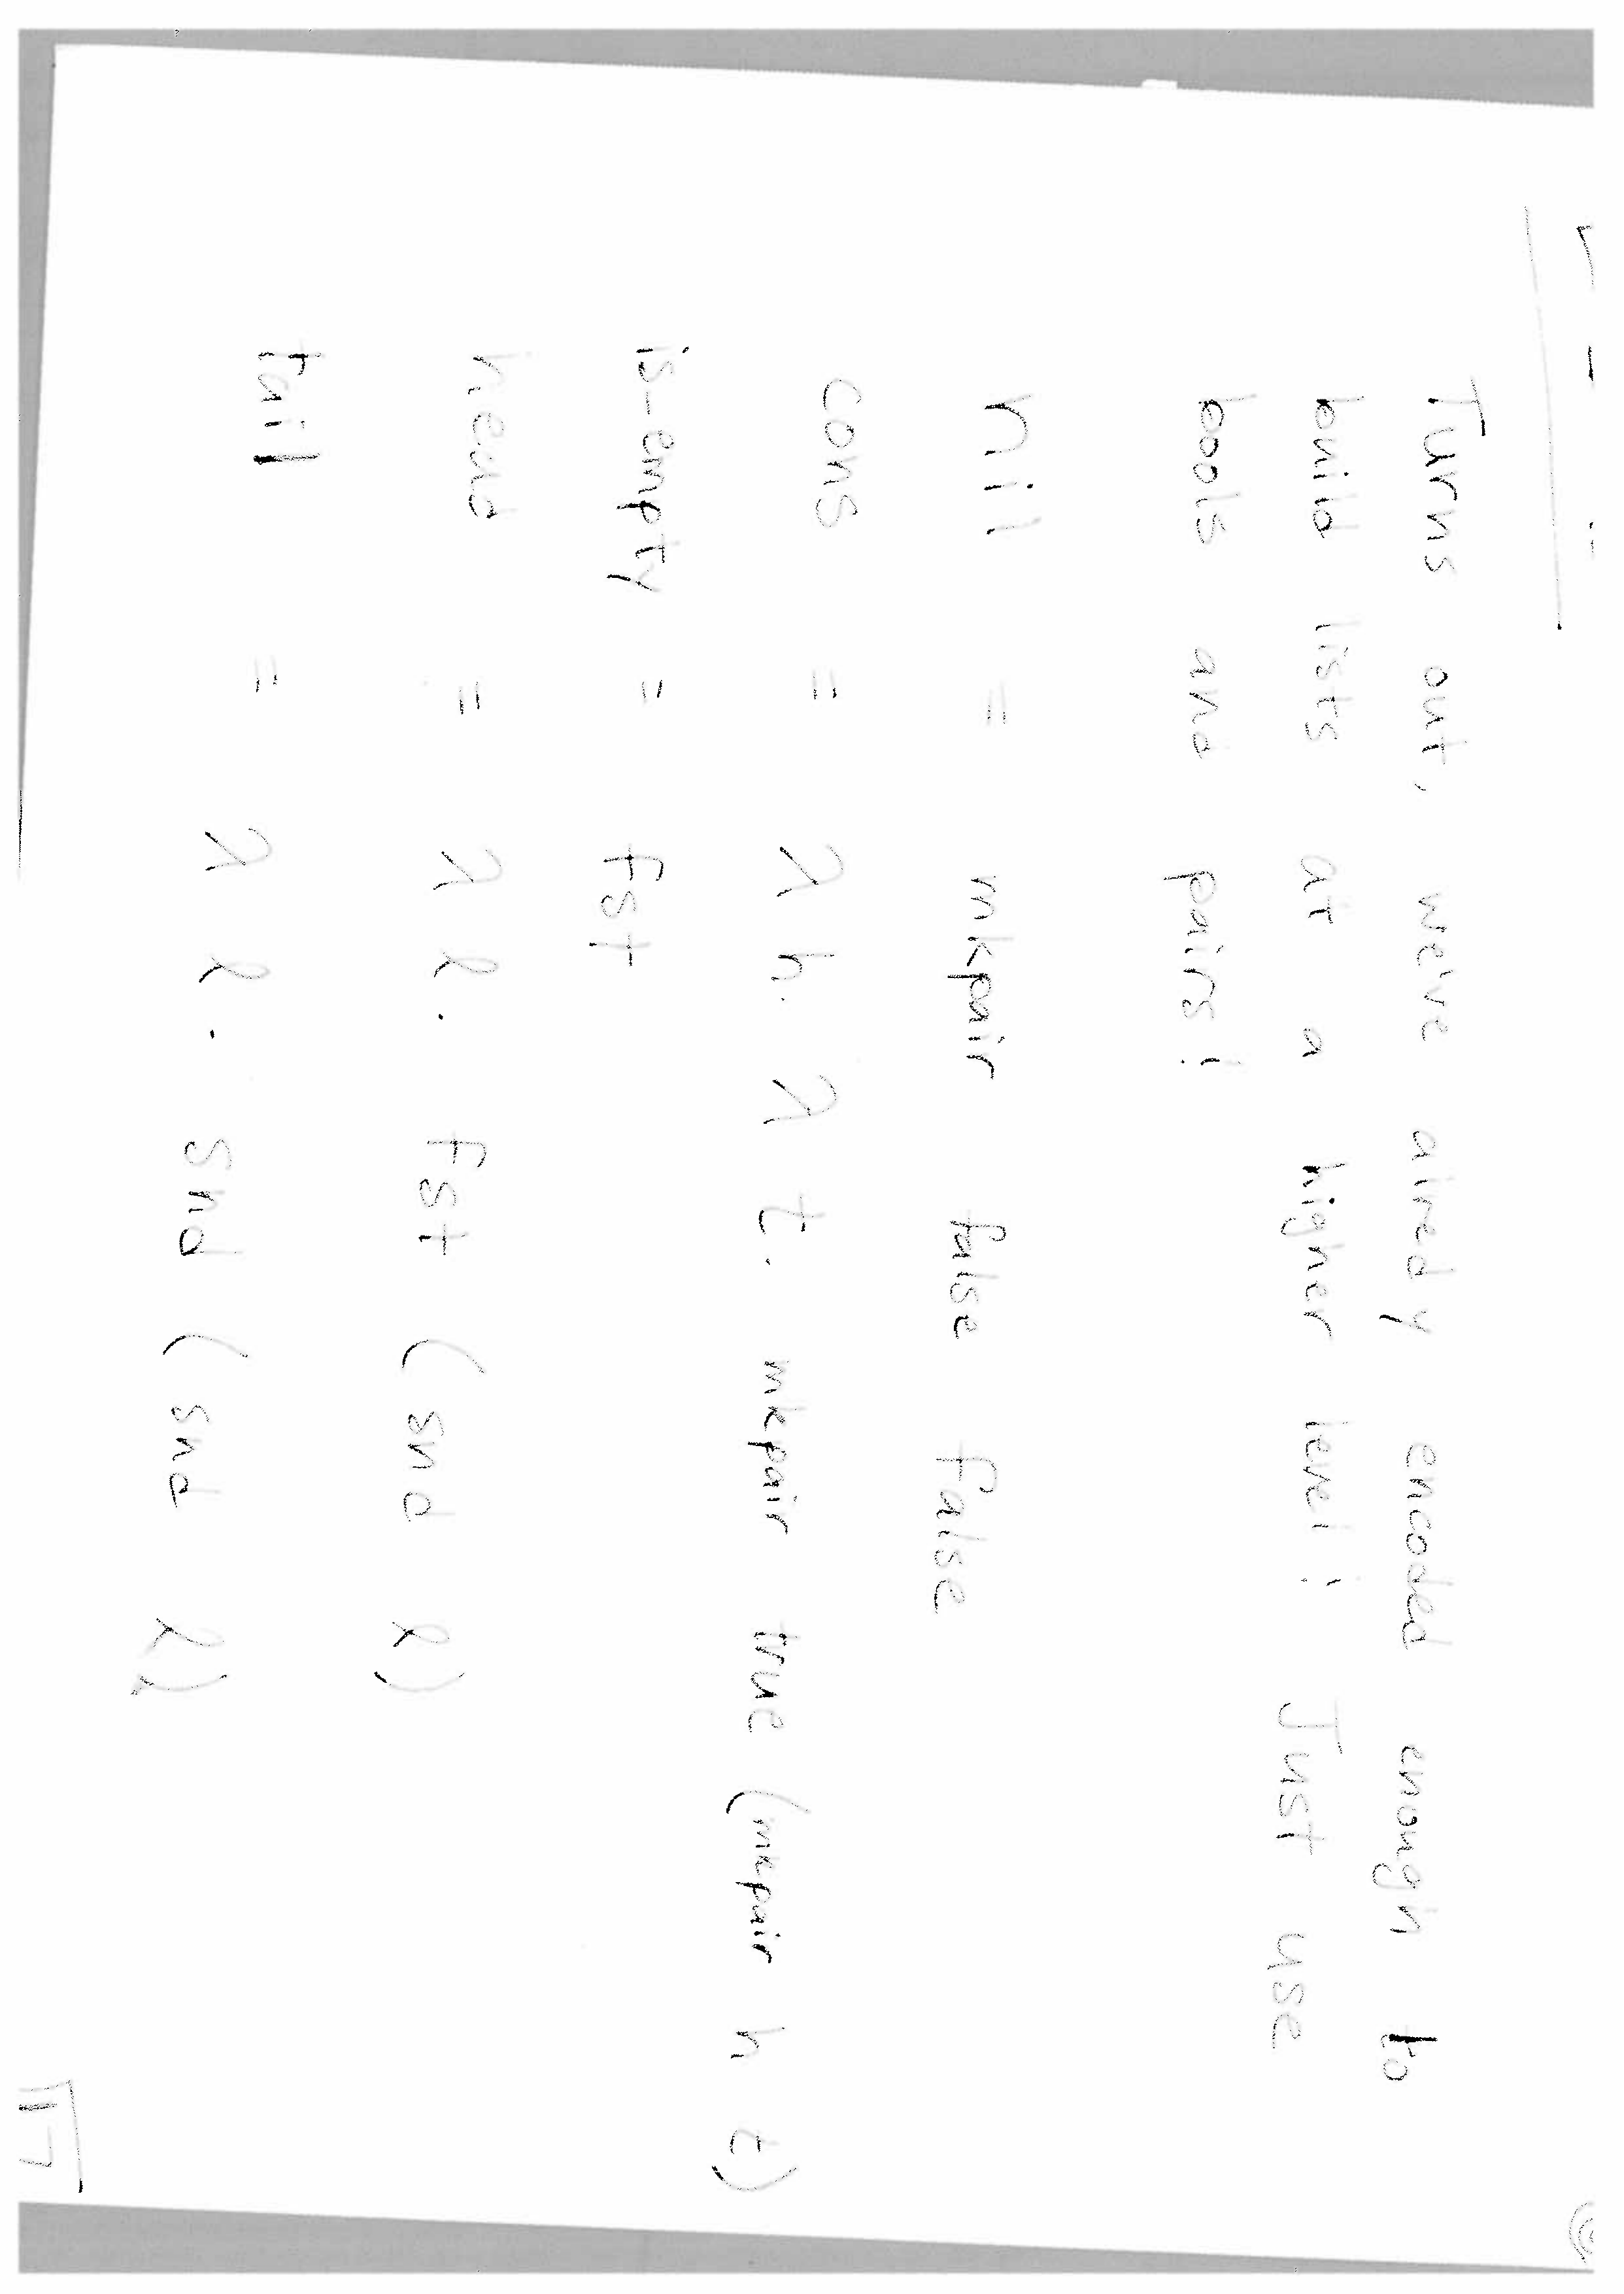 Turns out, we've alredy encoded enough to
build lists at a higher level! Just use
bools and pairs!
nil = mkpair false false
cons = λ h. λ t. mkpair true (mkpair h t)
is-empty = fst
head = λ l. fst (snd l)
tail = λ l. snd (snd l)